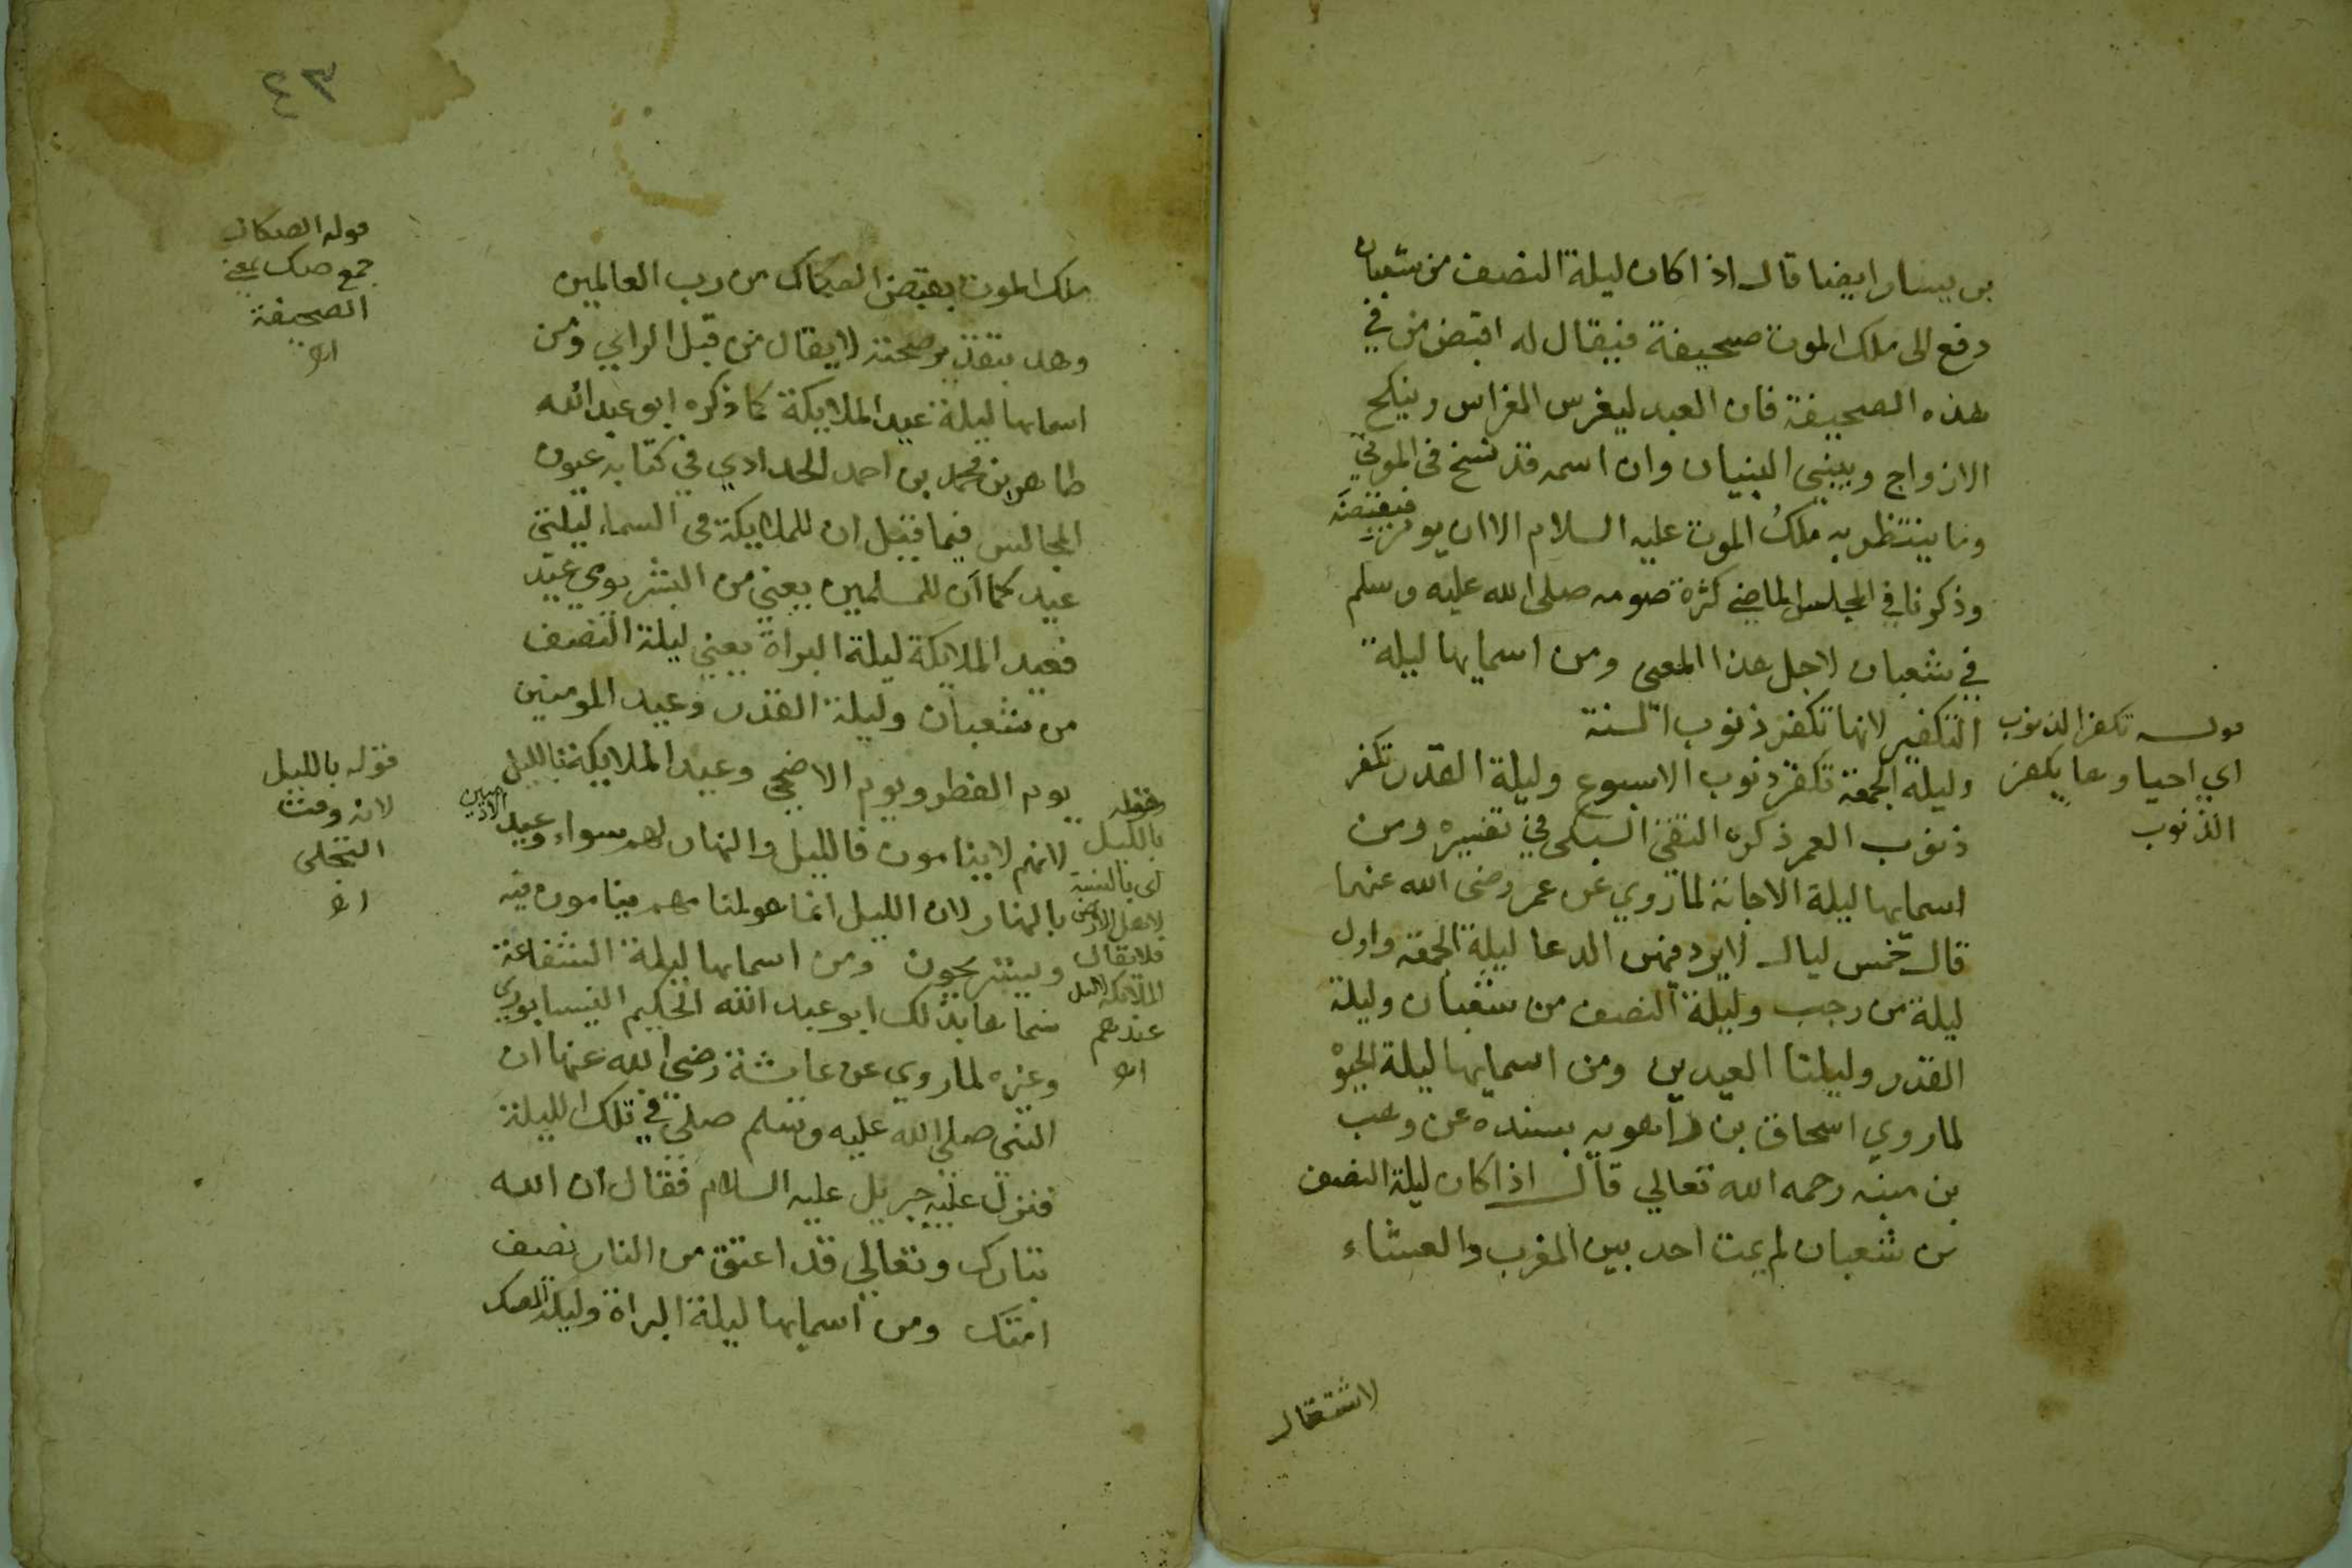 بن يسار ايضا قال اذا كان ليلة النصف من شعبان
دفع الى ملك الموت صحيفة فيقال له اقبض من في
هذه الصحيفة فان العبد ليغرس الغراس وينكح
الازواج ويبني البنيان وان اسمه قد نسخ في الموتى
وما ينتظر به ملك الموت عليه السلام الا ان يومر به
فيقبضه
وذكرنا في المجلس الماضي كثرة صومه صلى الله عليه وسلم
في شعبان لاجل هذا المعنى ومن اسمايها ليلة
التكفير لانها تكفر ذنوب السنة
وليلة الجمعة تكفر ذنوب الاسبوع وليلة القدر تكفر
ذنوب العمر ذكره التقي السبكي في تفسيره ومن
اسمايها ليلة الاجابة لما روي عن عمر رضى الله عنهما
قال خمس ليال لا يرد فيهن الدعا ليلة الجمعة واول
ليلة من رجب وليلة النصف من شعبان وليلة
القدر وليلتا العيدين ومن اسمايها ليلة
لما روي اسحاق بن راهويه بسنده عن وهب
بن منبه رحمه الله تعالي قال اذا كان ليلة النصف
من شعبان لم يمت احد بين المغرب والعشاء
لاشتغال
قوله تكفر الذنوب
اي احياوها يكفر
الذنوب
٤٣
ملك الموت بقبض الصكاك من رب العالمين
وهذ بتقدير صحته لا يقال من قبل الراي ومن
اسمايها ليلة عيد الملايكة كما ذكره ابو عبد الله
طاهر بن محمد بن احمد الحدادي في كتابه عيون
المجالس فيما قيل ان للملايكة في السماء ليلتي
عيد كما ان للمسلمين يعني من البشر يومي عيد
فعيد الملايكة ليلة البراة يعني ليلة النصف
من شعبان وليلة القدر وعيد المومنين
يوم الفطر ويوم الاضحى وعيد الملايكة بالليل
لانهم لا ينامون فالليل والنهار لهم سواء وعيد
الادميين
بالنهار لان الليل انما هو لمنامهم ينامون فيه
ويستريحون ومن اسمايها ليلة الشفاعة
سماها بذلك ابو عبد الله الحكيم النيسابوري
وغيره لما روي عن عايشة رضى الله عنها ان
النبي صلى الله عليه وسلم صلى في تلك الليلة
فنزل عليه جبريل عليه السلام فقال ان الله
تبارك وتعالي قد اعتق من النار نصف
امتك ومن اسمايها ليلة البراة وليلة الصك
قوله الصكاك
جمع صك بمعنى
الصحيفة
اهـ
قوله بالليل
لانه وقت
التجلى
اهـ
بالليل
اى بالنسبة
لاهل الارض
فلا يقال
الملايكة لا ليل
عندهم
اهـ